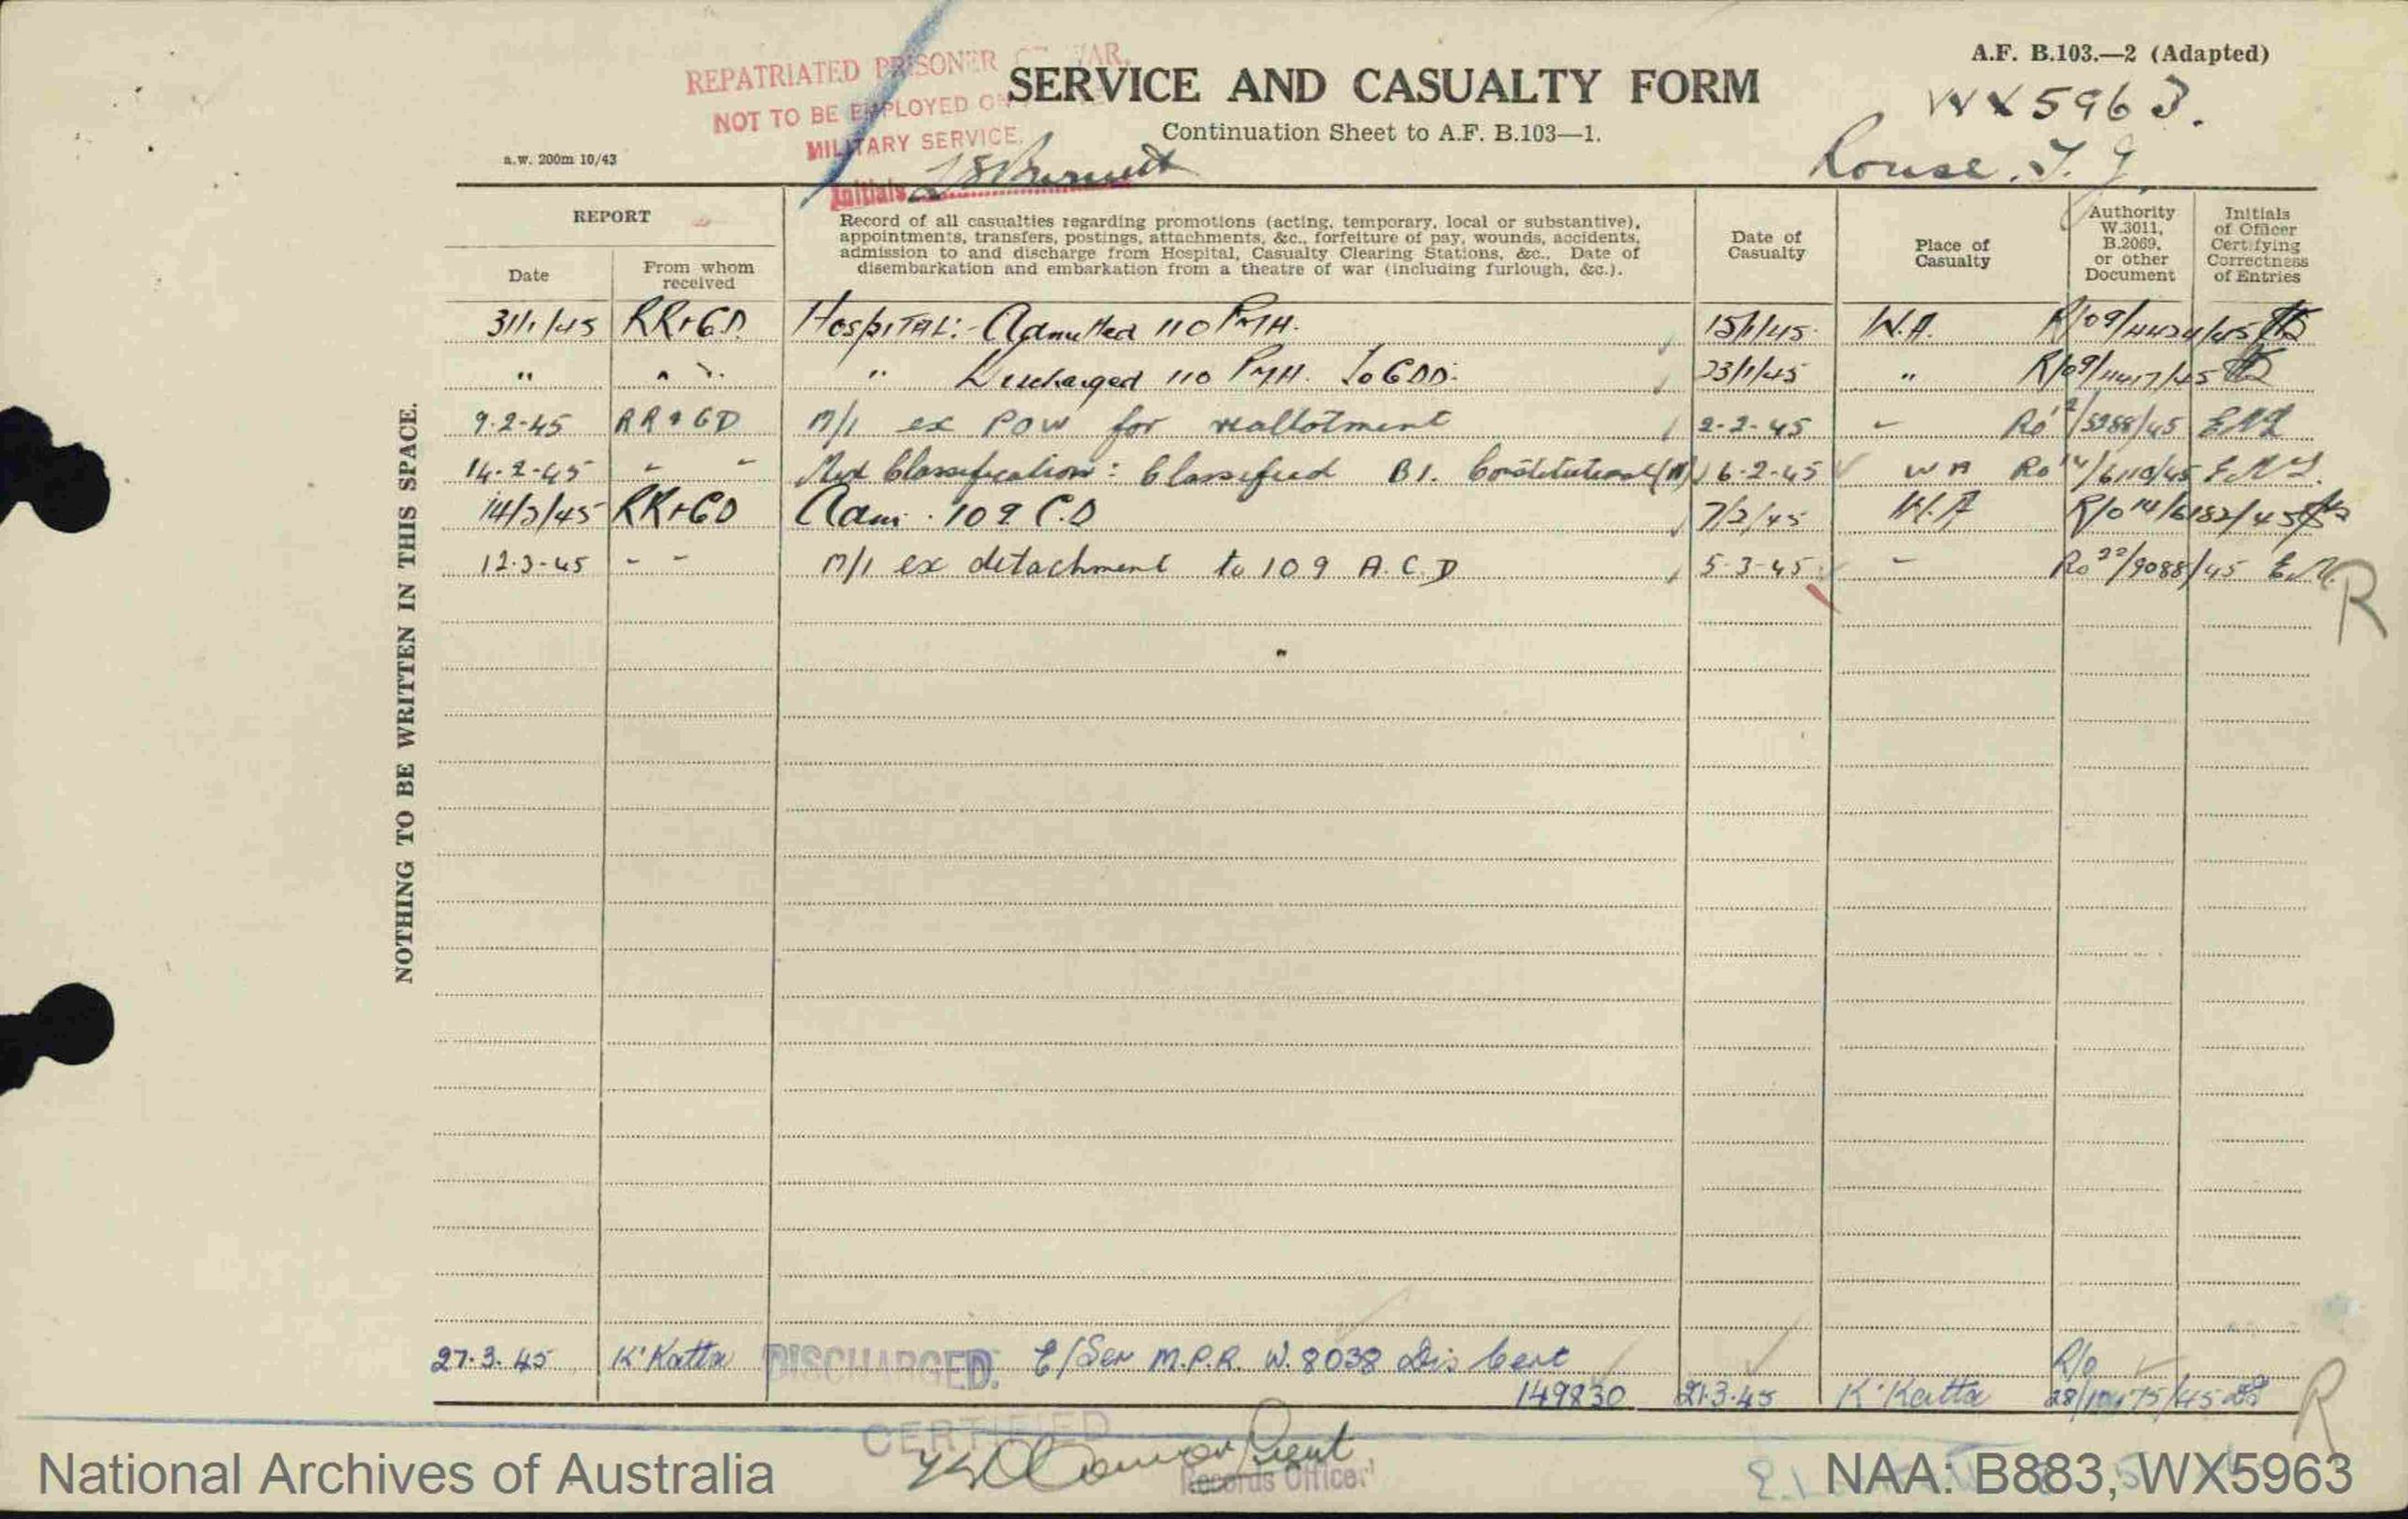 A.F. B.103.—2 (Adapted)
WX5963.
REPATRIATED PRISONER OF WAR.
NOT TO BE EMPLOYED ON
MILITARY SERVICE.
Initials
SERVICE AND CASUALTY FORM
Continuation Sheet to A.F. B.103—1.
Rouse. T. G.
a.w. 200m 10/43
NOTHING TO BE WRITTEN IN THIS SPACE.
REPORT
Date
From whom
received
Record of all casualties regarding promotions (acting, temporary, local or substantive),
appointments, transfers, postings, attachments, &c., forfeiture of pay, wounds, accidents,
admission to and discharge from Hospital, Casualty Clearing Stations, &c. Date of
disembarkation and embarkation from a theatre of war (including furlough, &c.).
Date of
Casualty
Place of
Casualty
Authority
W.3011,
B.2069,
or other
Document
Initials
of Officer
Certifying
Correctness
of Entries
31/1/45 RR+GD Hospital:- Admitted 110 PMH. 15/1/45 W.A.
" " " Discharged 110 PMH. To GDD. 23/1/45 " R/o9/4417/45
9.2.45 RR&GD M/I ex POW for reallotment 2-2-45 " Ro /5288/45
14.2.45 " " Med Classification: Classified B1. 6.2.45 WA Ro14/6110/45
14/2/45 RR+GD Adm. 109 C.D 7/2/45 W.A R/o14/6182/45
12.3.45 " " M/I ex detachment to 109 A.C.D 5.3.45 " Ro22/9088/45
R
27.3.45 K'Katta DISCHARGED. M.P.R. W.8038 Dis Cert R/o
149830 21.3.45 K'Katta
R
CERTIFIED
Records Officer
National Archives of Australia
NAA: B883, WX5963